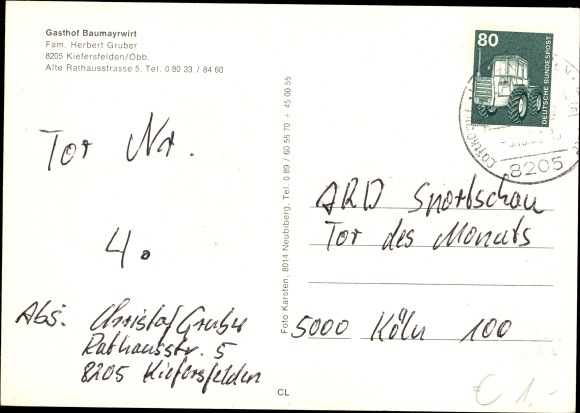 Gasthof Baumayrwirt
Fam. Herbert Gruber
8205 Kiefersfelden/Obb.
Alte Rathausstrasse 5, Tel. 0 80 33 / 84 60
Tor Nr.
4.
Abs. Christof Gruber
Rathausstr. 5
8205 Kiefersfelden
Foto Karsten, 8014 Neubiberg, Tel. 0 89 / 60 55 70 + 45 00 55
CL
80
DEUTSCHE BUNDESPOST
8205
ARD Sportschau
Tor des Monats
5000 Köln 100
€ 1,-